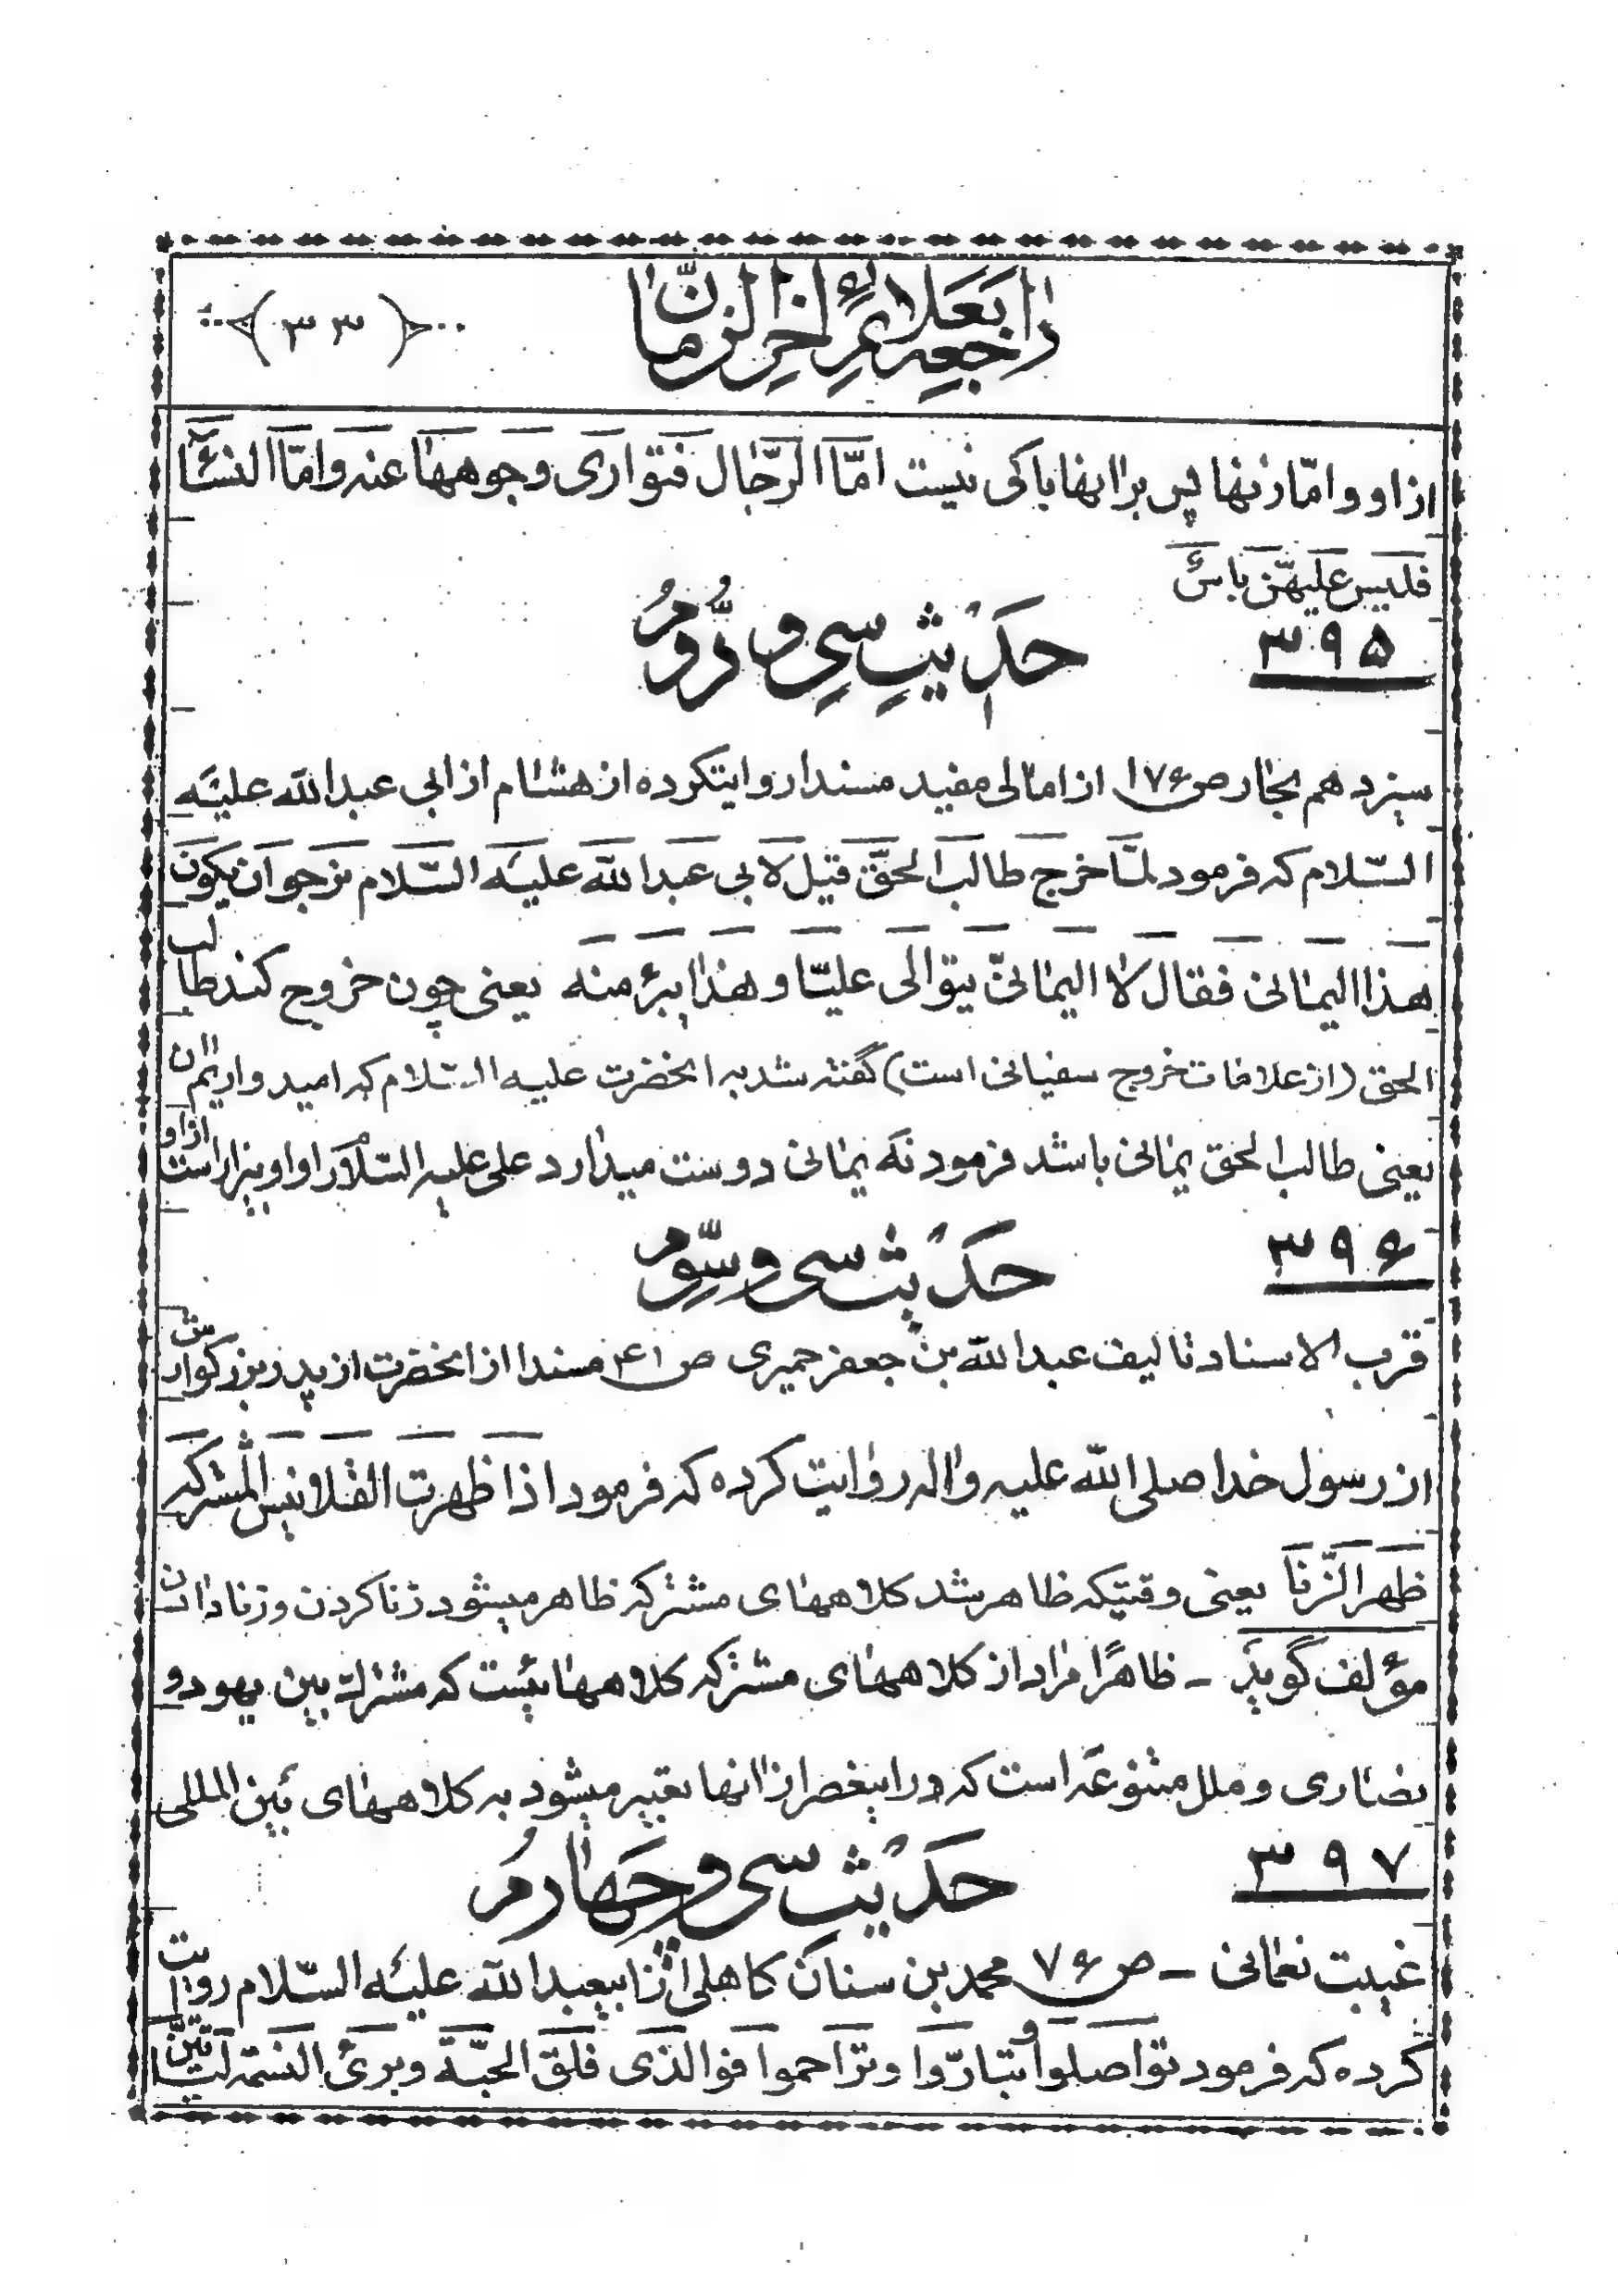 راجعه بعلائم اخر الزمان
(۳۳)
از او و امّا زنها پس بر انها باکی نیست امّا الرّجال فتواری وجوهها عنه و امّا النساۤء
فلیس علیهنّ باس
۳۹۵
حدیث سی و دوّم
سیزدهم بحار ص۱۷۶ از امالی مفید مسندا روایتکرده از هشام از ابی عبدالله علیه
السّلام که فرمود لمّا خرج طالب الحقّ قیل لابی عبدالله علیه السّلام نرجوا ان یکون
هذا الیمانی فقال لا الیمانیّ یتوالی علیّا و هذا یبرء منه یعنی چون خروج کند طالب
الحق (از علامات خروج سفیانی است) گفته شد به انحضرت علیه السّلام که امیدواریم ان
یعنی طالب الحق یمانی باشد فرمود نه یمانی دوست میدارد علی علیه السّلام را و او بیزار است از او
۳۹۶
حدیث سی و سوّم
قرب الاسناد تالیف عبدالله بن جعفر حمیری ص۴۱ مسندا از انحضرت از پدر بزرکوارش
از رسول خدا صلی الله علیه واله روایت کرده که فرمود اذا ظهرت القلانیس المشترکه
ظهر الزّنا یعنی وقتیکه ظاهر شد کلاههای مشترکه ظاهر میشود زنا کردن و زنا دادن
مؤلف گوید – ظاهرًا مراد از کلاههای مشترکه کلاههائیست که مشترک بین یهود و
نصاری و ملل متنوعه است که در اینعصر از انها تعبیر میشود به کلاههای بین المللی
۳۹۷
حدیث سی و چهارم
غیبت نعمانی – ص۷۶ محمد بن سنان کاهلی از ابیعبدالله علیه السّلام روایت
کرده که فرمود تواصلوا و تبارّوا و تراحموا فوالذی فلق الحبّة و برئ النسمة لیاتینّ